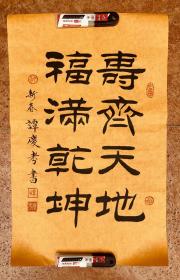 壽齊天地
福滿乾坤
新春 譚慶考書